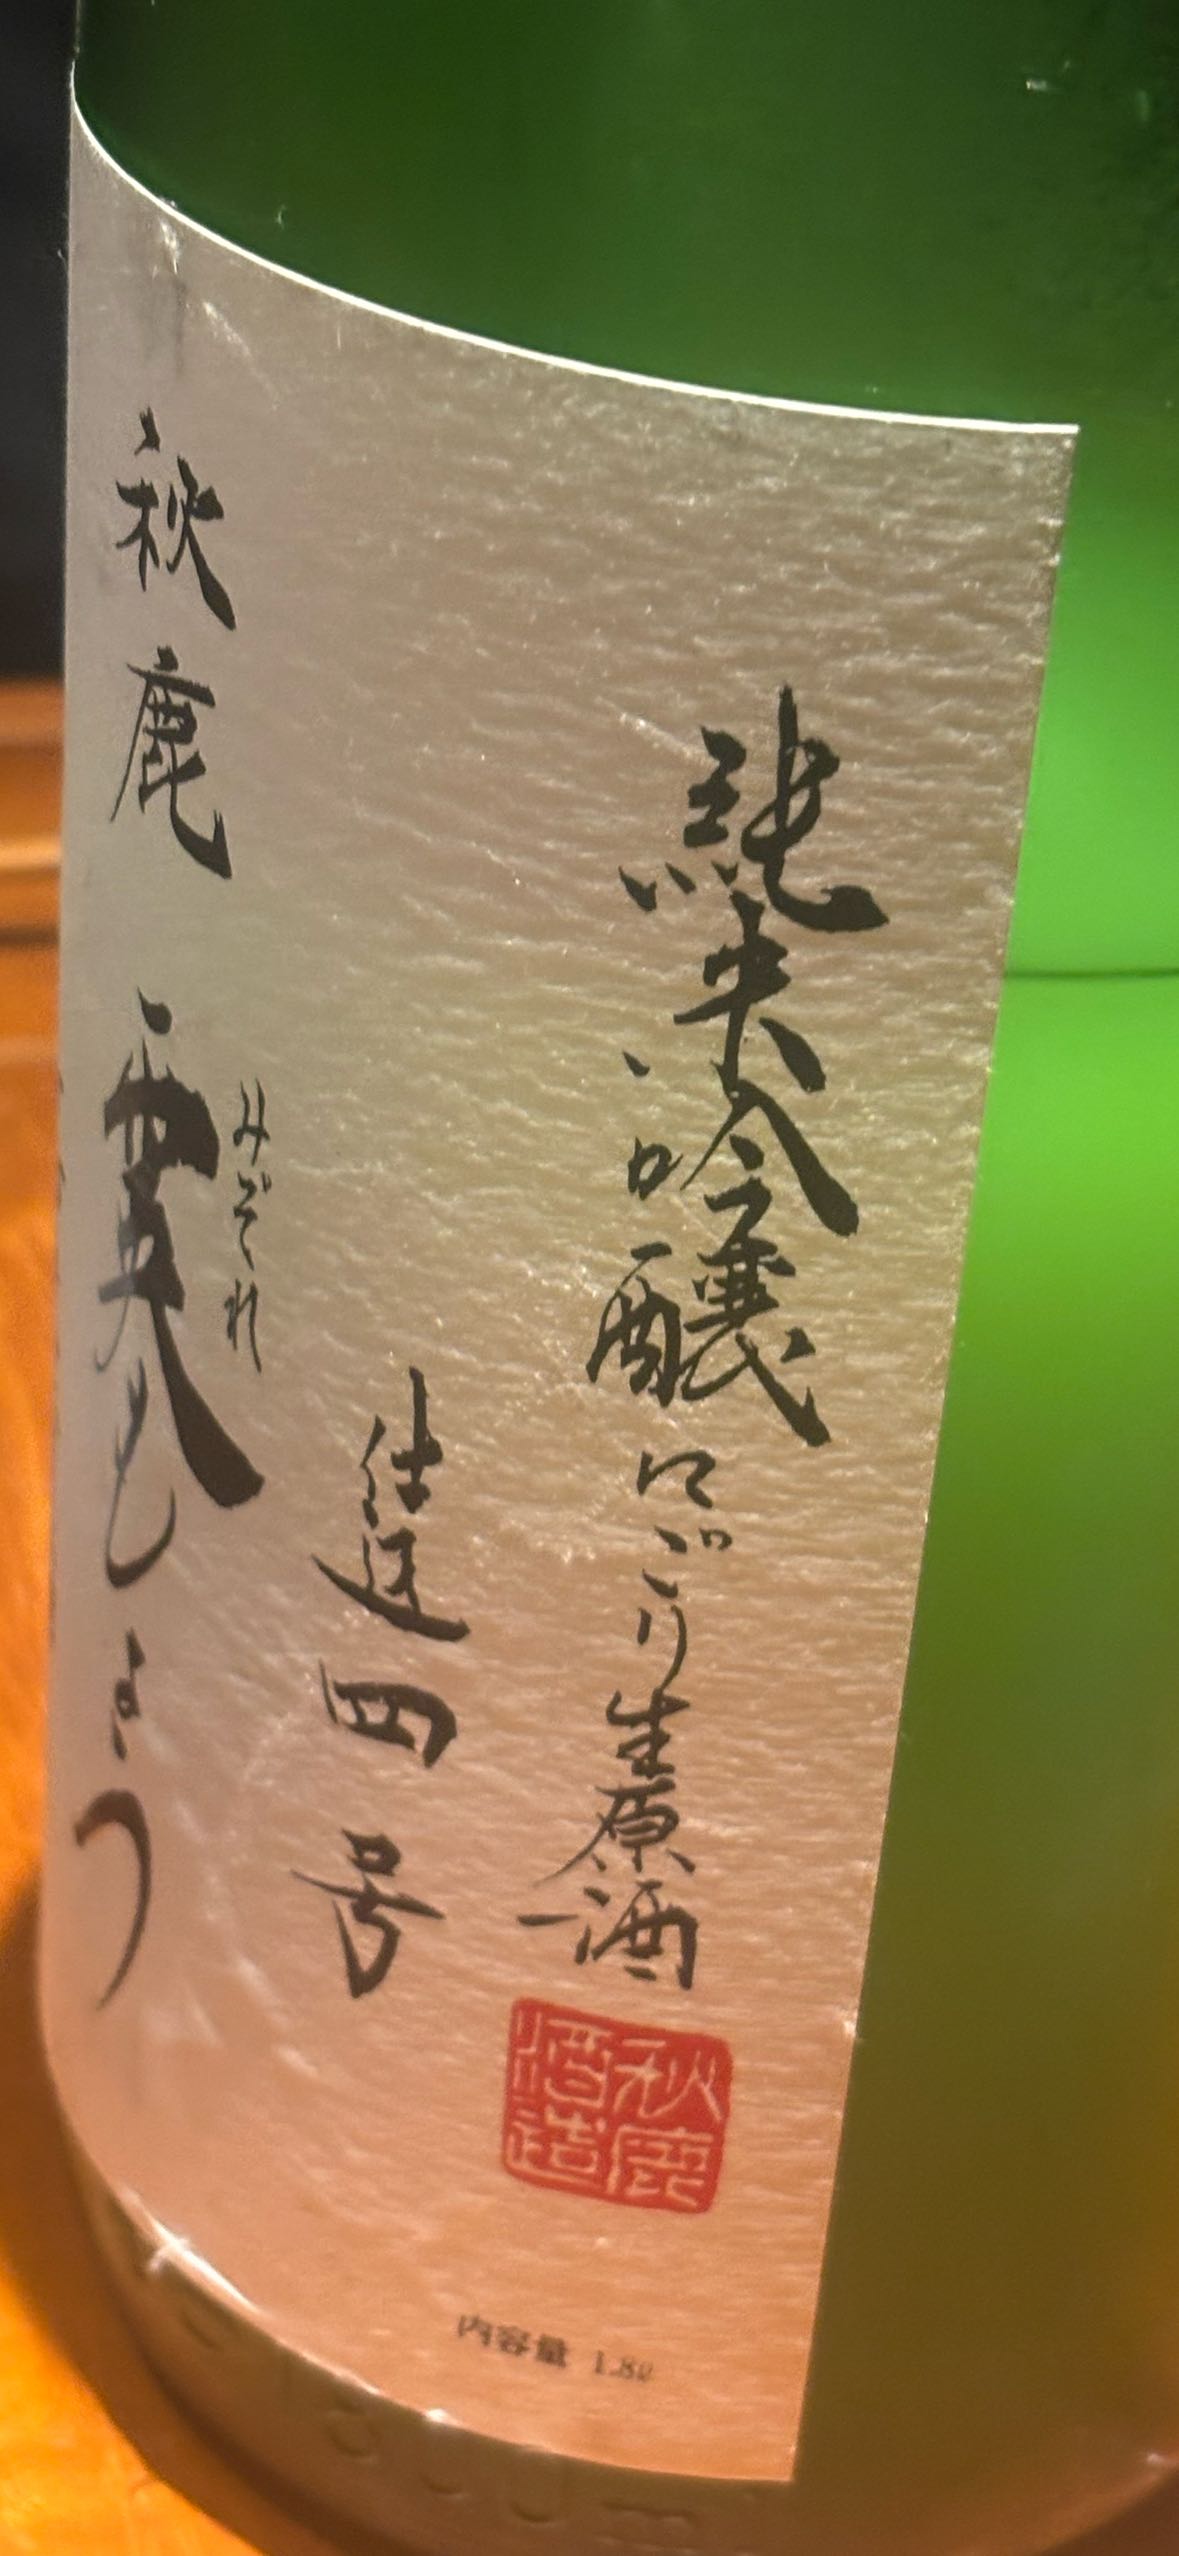 純米吟醸 にごり生原酒
秋鹿
酒造
仕込四号
みぞれ
秋鹿 霙もよう
内容量 1.8ℓ